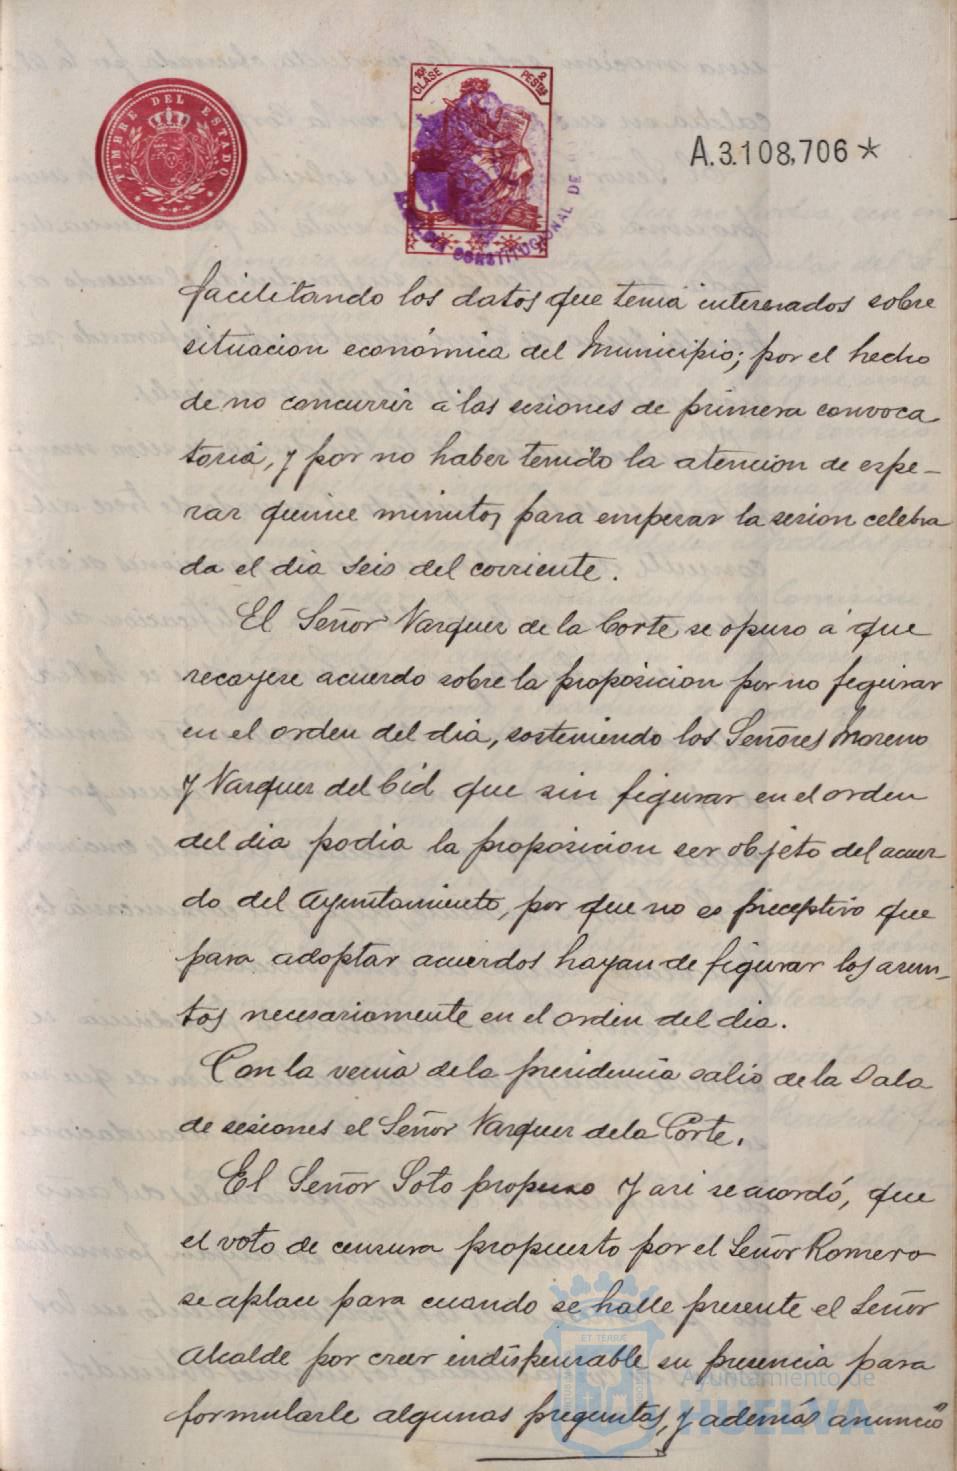 TIMBRE DEL ESTADO
10ª CLASE
2 PESETAS
CONSTITUCIONAL DE
A.3.108,706*
facilitando los datos que tenia interesados sobre
situacion económica del Municipio; por el hecho
de no concurrir á las sesiones de primera convoca
toria, y por no haber tenido la atencion de espe-
rar quince minutos para empezar la sesion celebra
da el dia seis del corriente.
El Señor Vazquez de la Corte se opuso á que
recayese acuerdo sobre la proposicion por no figurar
en el orden del dia, sosteniendo los Señores Moreno
y Vazquez del Cid que sin figurar en el orden
del dia podia la proposicion ser objeto del acuer
do del Ayuntamiento, por que no es preceptivo que
para adoptar acuerdos hayan de figurar los asun-
tos necesariamente en el orden del dia.
Con la venia de la presidencia salio de la Sala
de sesiones el Señor Vazquez de la Corte.
El Señor Soto propuso y asi se acordó, que
el voto de censura propuesto por el Señor Romero
se aplace para cuando se halle presente el Señor
Alcalde por creer indispensable su presencia para
formularle algunas preguntas, y además anunció
ET TERRÆ
Ayuntamiento de
HUELVA